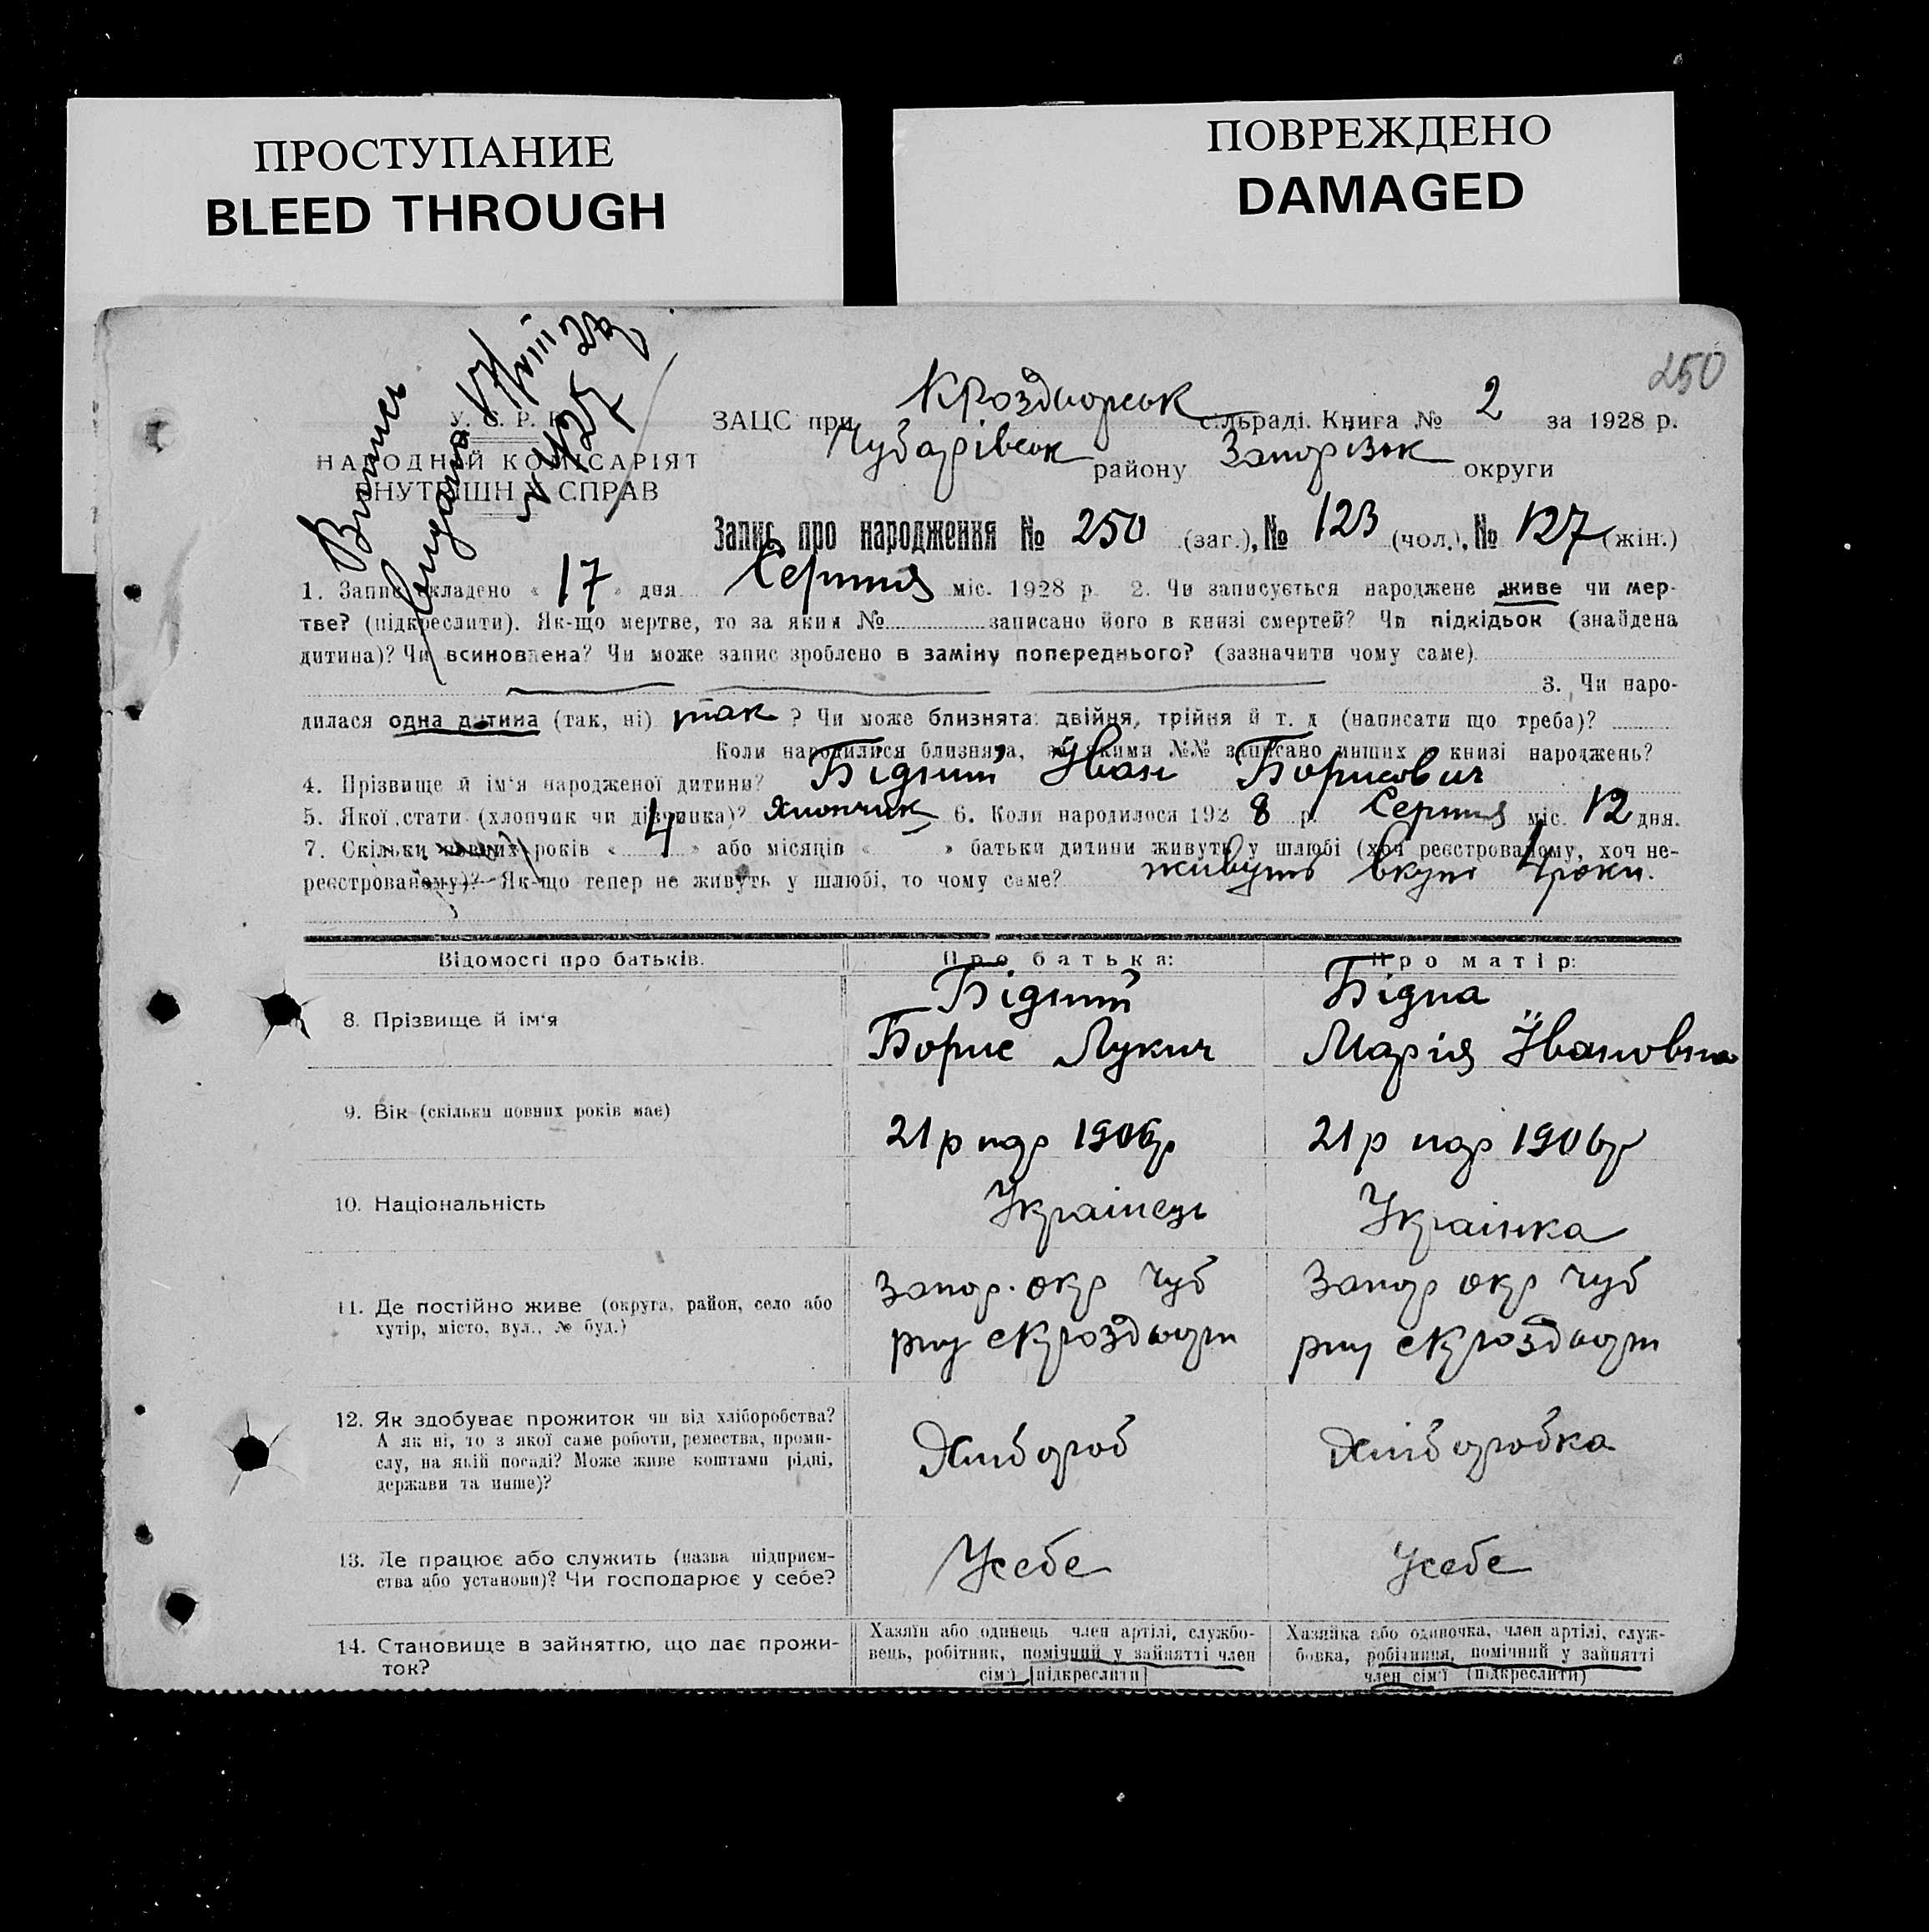 ПРОСТУПАНИЕ
BLEED THROUGH
ПОВРЕЖДЕНО
DAMAGED
250
Випись
видана 17/VIII 28р
№ 425
У. С. Р. Р.
НАРОДНИЙ КОМІСАРІЯТ
ВНУТРІШНІХ СПРАВ
ЗАЦС при Кроздворськ сільраді. Книга № 2 за 1928 р.
Чубарівськ району Запорізьк округи
Запис про народження № 250 (заг.), № 123 (чол.), № 127 (жін.)
1. Запис складено « 17 » дня Серпня міс. 1928 р. 2. Чи записується народжене живе чи мер-
тве? (підкреслити). Як-що мертве, то за яким № записано його в книзі смертей? Чи підкідьок (знайдена
дитина)? Чи всиновлена? Чи може запис зроблено в заміну попереднього? (зазначити чому саме)
3. Чи наро-
дилася одна дитина (так, ні) так ? Чи може близнята: двійня, трійня й т. д (написати що треба)?
Коли народилися близнята, за якими №№ записано инших в книзі народжень?
4. Прізвище й ім'я народженої дитини? Бідний Іван Борисович
5. Якої стати (хлопчик чи дівчинка)? Хлопчик 6. Коли народилося 192 8 р. Серпня міс. 12 дня.
7. Скільки повних років « 4 » або місяців « » батьки дитини живуть у шлюбі (хоч реєстрованому, хоч не-
реєстрованому)? Як-що тепер не живуть у шлюбі, то чому саме? живуть вкупі 4 роки.
Відомості про батьків. Про батька: Про матір:
8. Прізвище й ім'я
Бідний
Борис Лукич
Бідна
Марія Івановна
9. Вік (скільки повних років має)
21 р нар 1906р
21 р нар 1906р
10. Національність
Українець
Українка
11. Де постійно живе (округа, район, село або
хутір, місто, вул., № буд.)
Запор. окр Чуб
рну сКроздвор
Запор окр Чуб
рну сКроздвор
12. Як здобуває прожиток чи від хліборобства?
А як ні, то з якої саме роботи, ремества, проми-
слу, на якій посаді? Може живе коштами рідні,
держави та инше)?
Хлібороб
Хліборобка
13. Де працює або служить (назва підприєм-
ства або установи)? Чи господарює у себе?
Усебе
Усебе
14. Становище в зайняттю, що дає прожи-
ток?
Хазяїн або одинець член артілі, службо-
вець, робітник, помічний у зайнятті член
сім'ї [підкреслити]
Хазяйка або одиночка, член артілі, служ-
бовка, робітниця, помічний у зайнятті
член сім'ї (підкреслити)